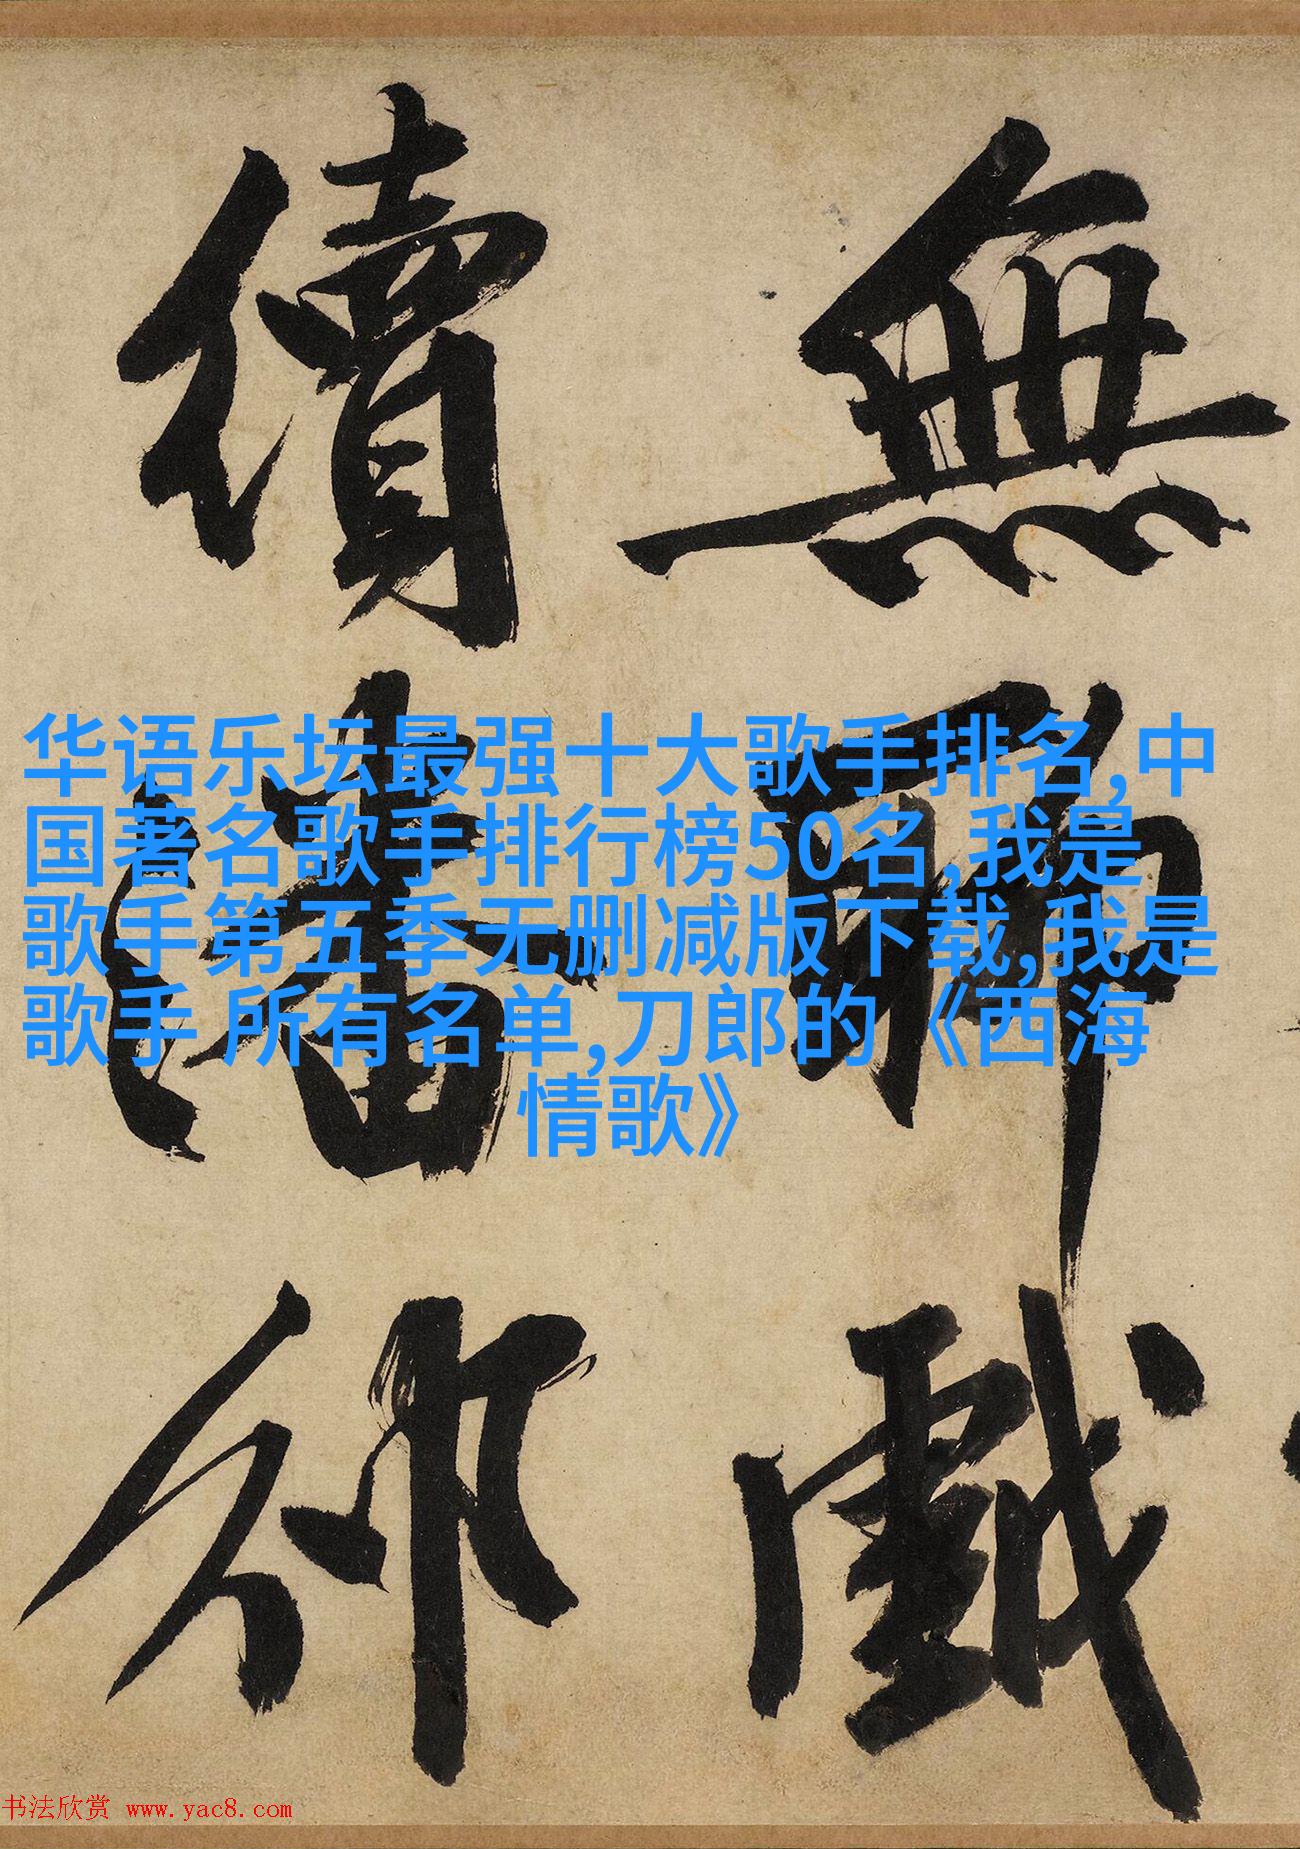 無聊戲
續潘郎
华语乐坛最强十大歌手排名,中
国著名歌手排行榜50名,我是
歌手第五季无删减版下载,我是
歌手 所有名单,刀郎的《西海
情歌》
书法欣赏 www.yac8.com